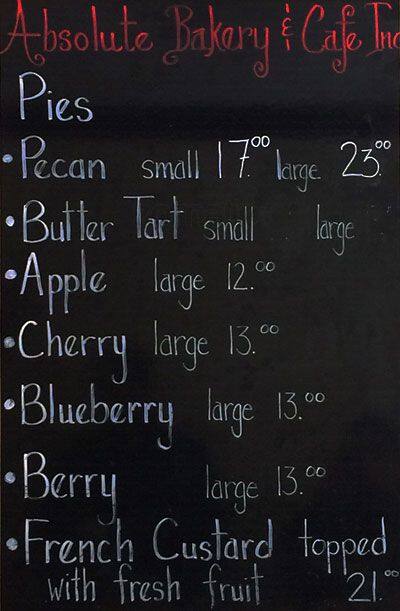 Absolute Bakery & Cafe Inc
Pies
• Pecan small 17.00 large 23.00
• Butter Tart small large
• Apple large 12.00
• Cherry large 13.00
• Blueberry large 13.00
• Berry large 13.00
• French Custard topped
with fresh fruit 21.00